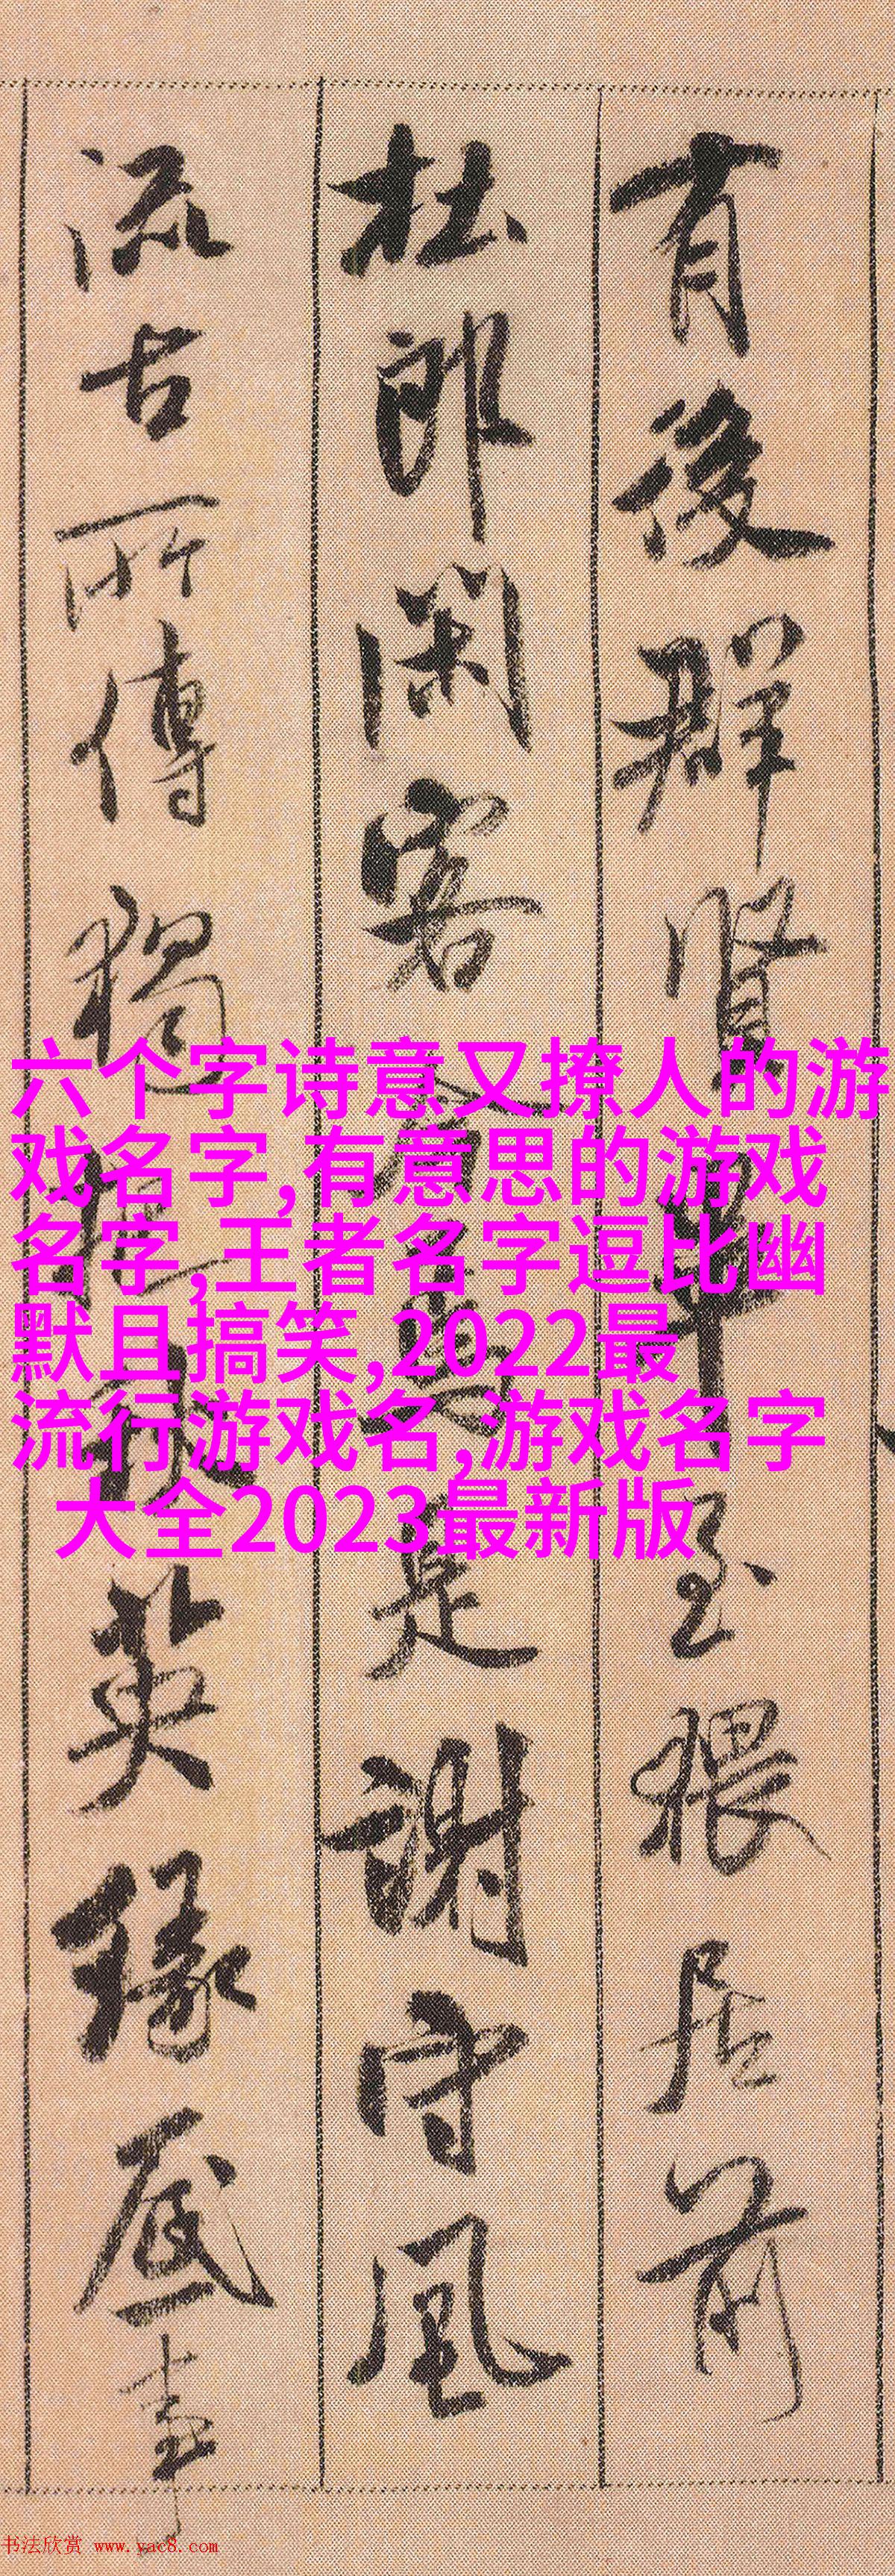 有後群賢畢至猥居前
杜郎閑客今焉是謝守風
流古所傳獨把秋英緣底事
六个字诗意又撩人的游
戏名字,有意思的游戏
名字,王者名字逗比幽
默且搞笑,2022最
流行游戏名,游戏名字
大全2023最新版
书法欣赏 www.yac8.com